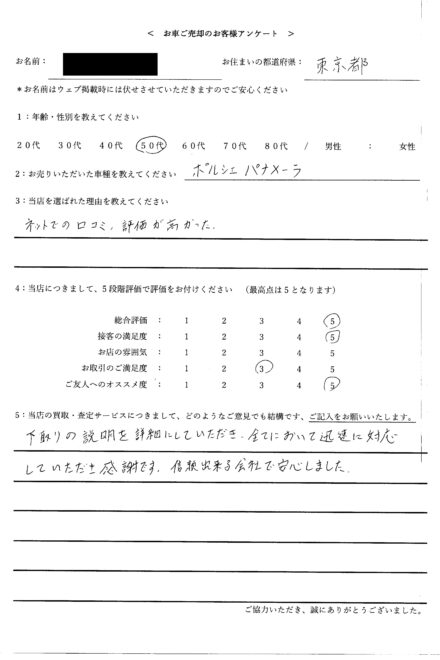 ＜ お車ご売却のお客様アンケート ＞
お名前： お住まいの都道府県： 東京都
＊お名前はウェブ掲載時には伏せさせていただきますのでご安心ください
1：年齢・性別を教えてください
20代 30代 40代 50代 60代 70代 80代 / 男性 ： 女性
2：お売りいただいた車種を教えてください ポルシェ パナメーラ
3：当店を選ばれた理由を教えてください
ネットでの口コミ、評価が高かった.
4：当店につきまして、5段階評価で評価をお付けください （最高点は5となります）
総合評価 ： 1 2 3 4 5
接客の満足度 ： 1 2 3 4 5
お店の雰囲気 ： 1 2 3 4 5
お取引のご満足度 ： 1 2 3 4 5
ご友人へのオススメ度 ： 1 2 3 4 5
5：当店の買取・査定サービスにつきまして、どのようなご意見でも結構です、ご記入をお願いいたします。
下取りの説明を詳細にしていただき、全てにおいて迅速に対応
していただき感謝です. 信頼出来る会社で安心しました.
ご協力いただき、誠にありがとうございました。